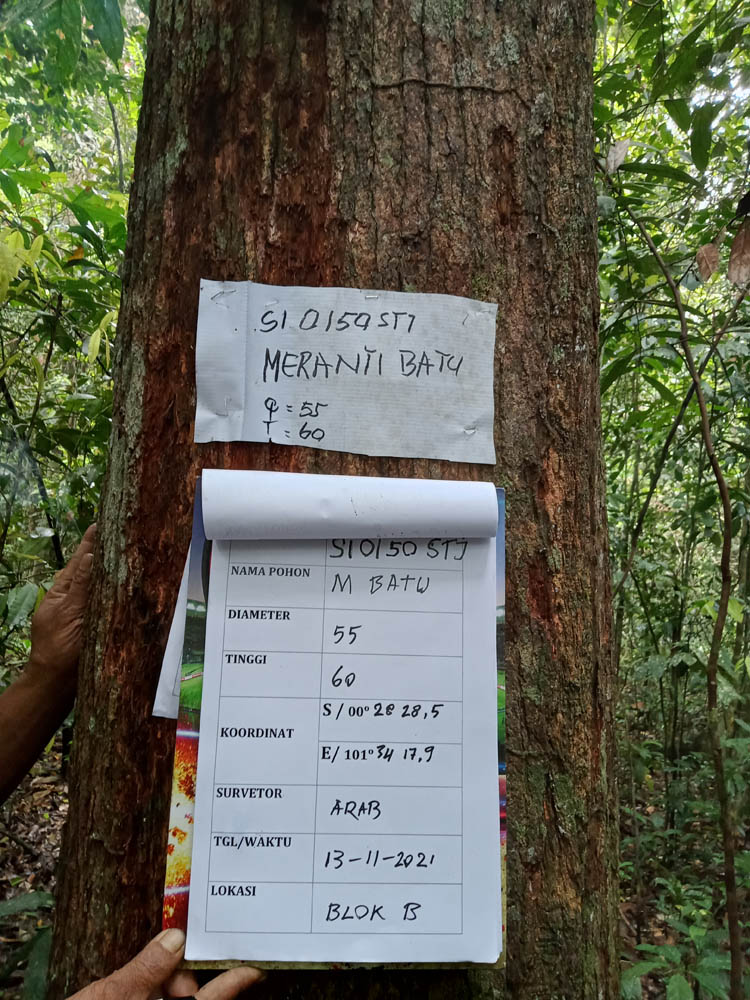 SI 0150 STJ
MERANTI BATU
φ = 55
T = 60
SI 0150 STJ
NAMA POHON M BATU
DIAMETER 55
TINGGI 60
KOORDINAT S / 00º 28 28,5
E/ 101º 34 17,9
SURVETOR ARAB
TGL/WAKTU 13-11-2021
LOKASI BLOK B